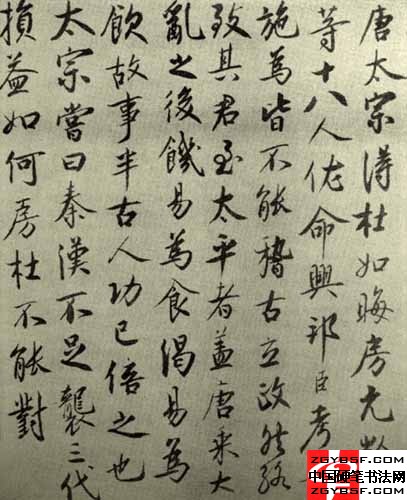 唐太宗得杜如晦房元齡
等十八人佐命興邦臣考其
施為皆不能稽古立政然終
致其君至太平者蓋唐乘大
亂之後饑易為食渴易為
飲故事半古人功已倍之也
太宗嘗曰秦漢不足襲三代
損益如何房杜不能對
中国硬笔书法网
ZGYBSF.COM